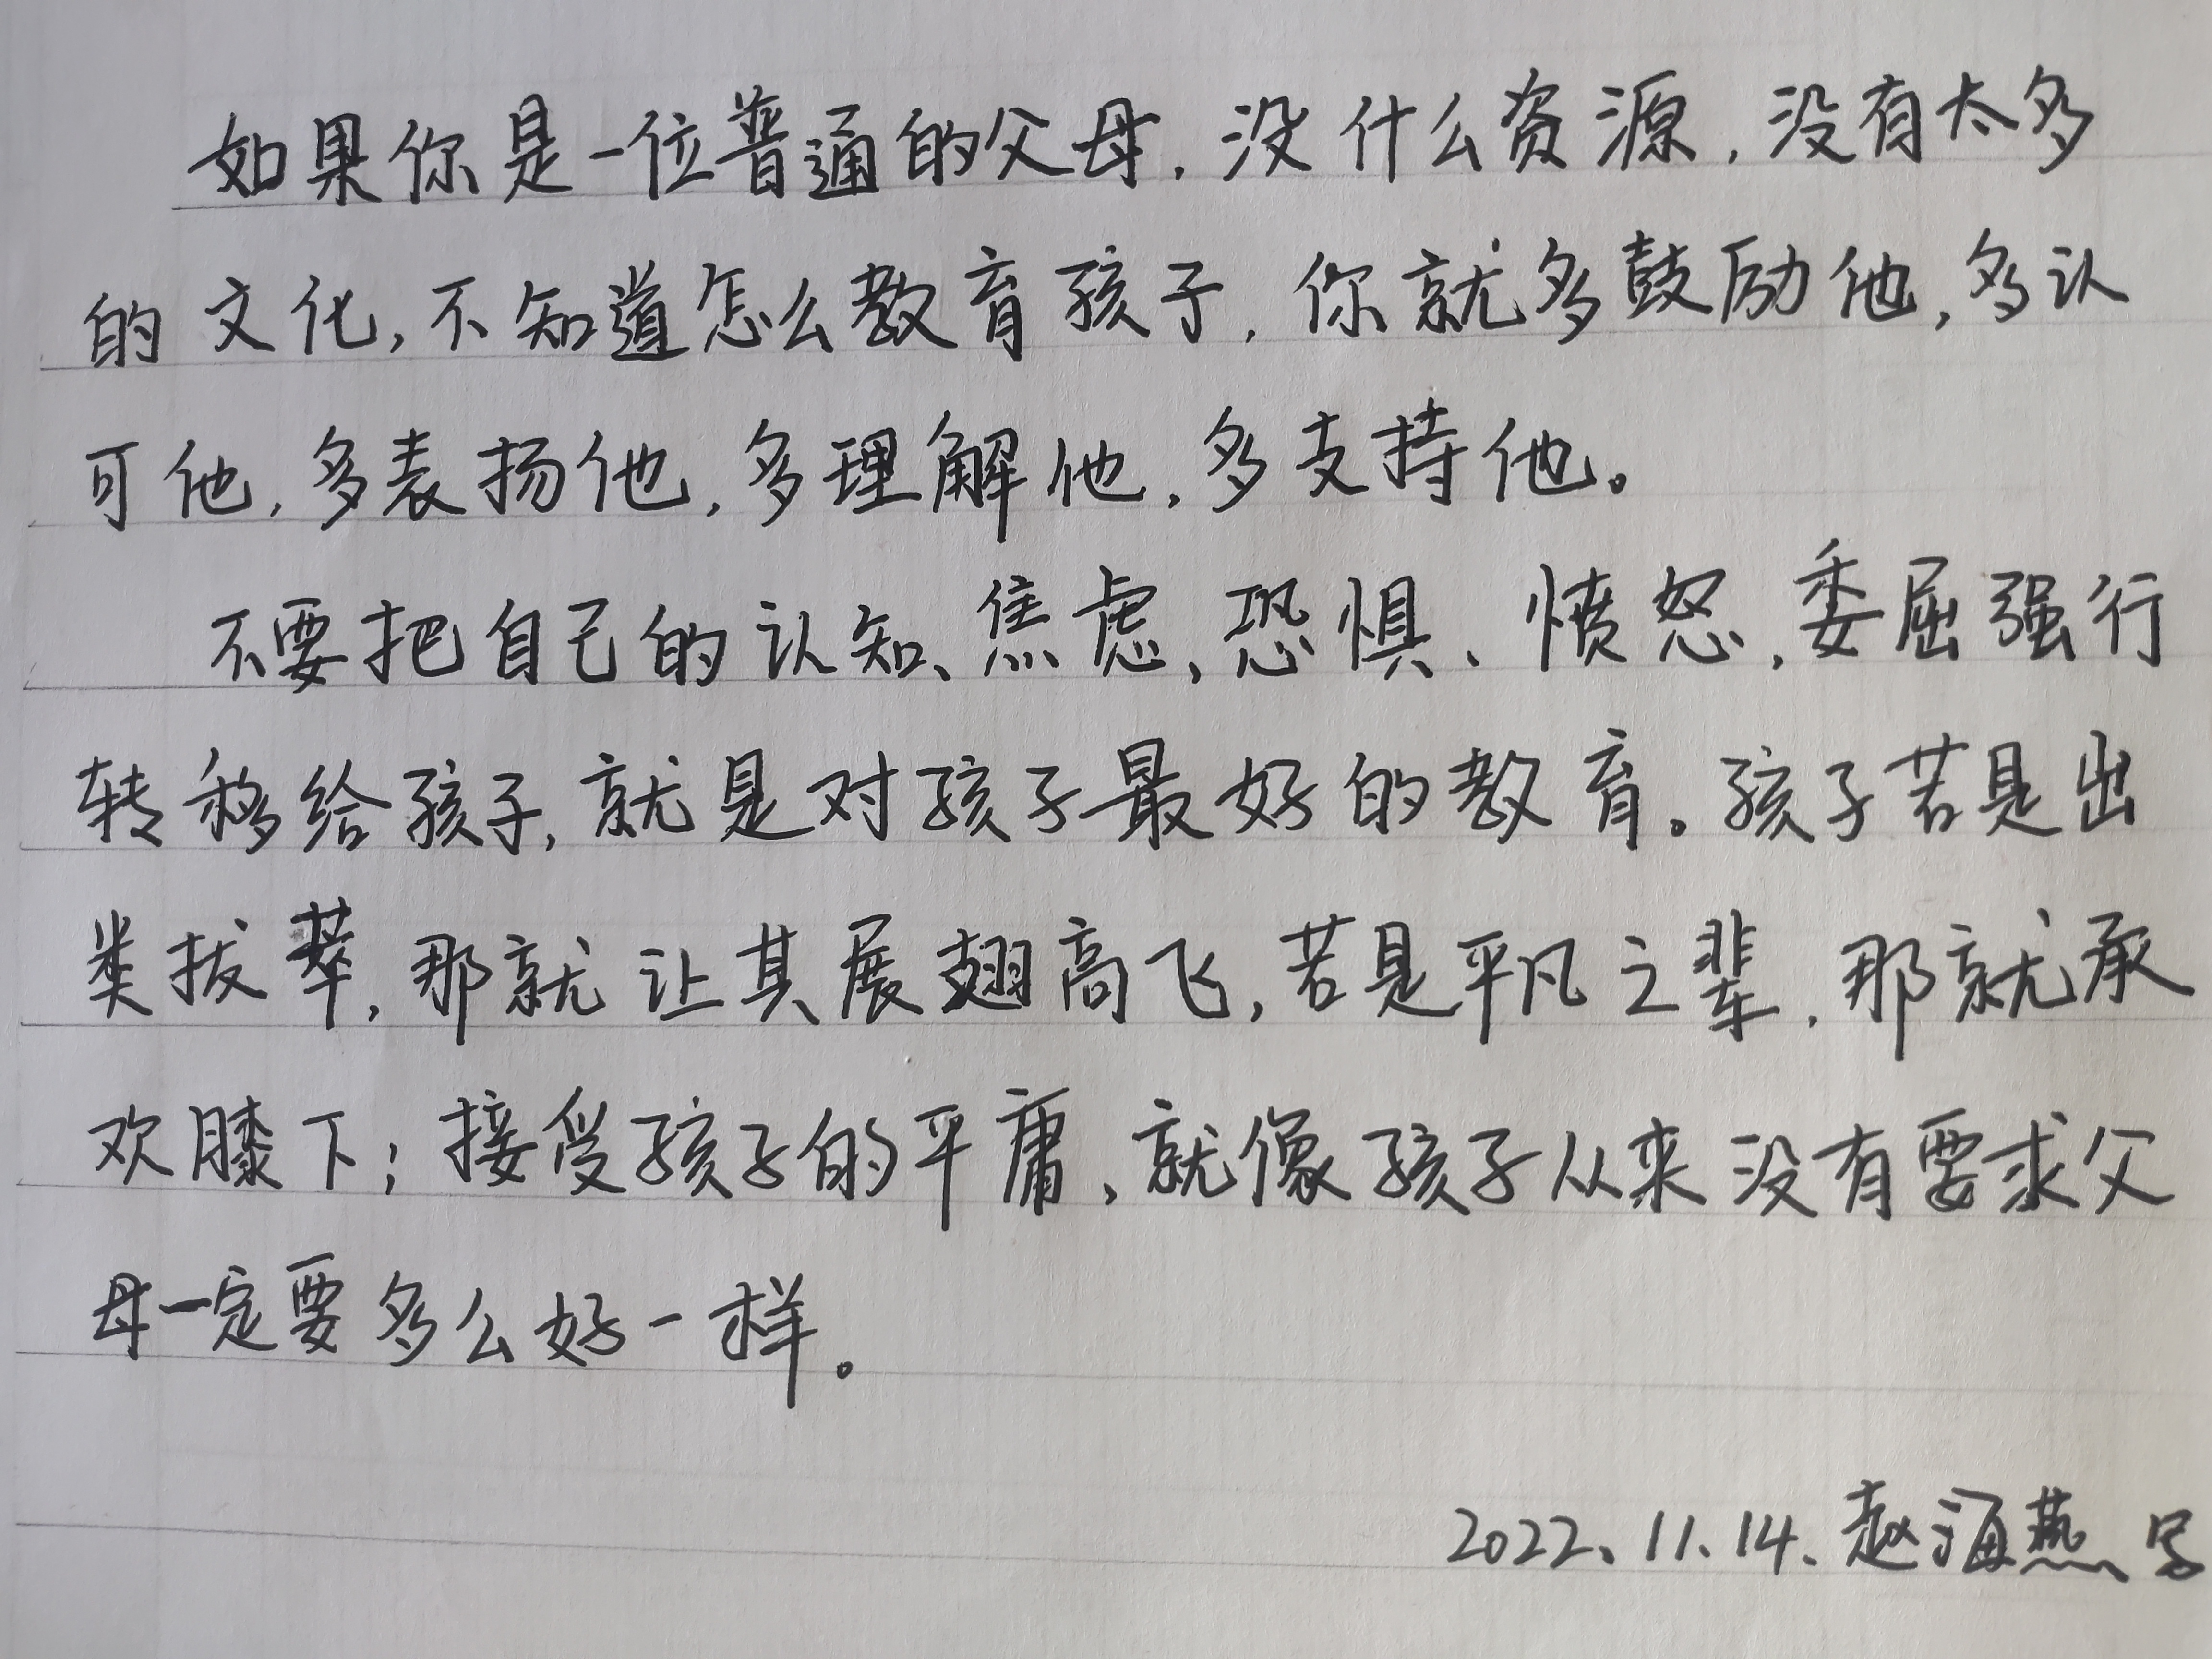 如果你是一位普通的父母，没什么资源，没有太多
的文化，不知道怎么教育孩子，你就多鼓励他，多认
可他，多表扬他，多理解他，多支持他。
不要把自己的认知、焦虑、恐惧、愤怒、委屈强行
转移给孩子，就是对孩子最好的教育。孩子若是出
类拔萃，那就让其展翅高飞，若是平凡之辈，那就承
欢膝下；接受孩子的平庸，就像孩子从来没有要求父
母一定要多么好一样。
2022、11、14、赵海燕